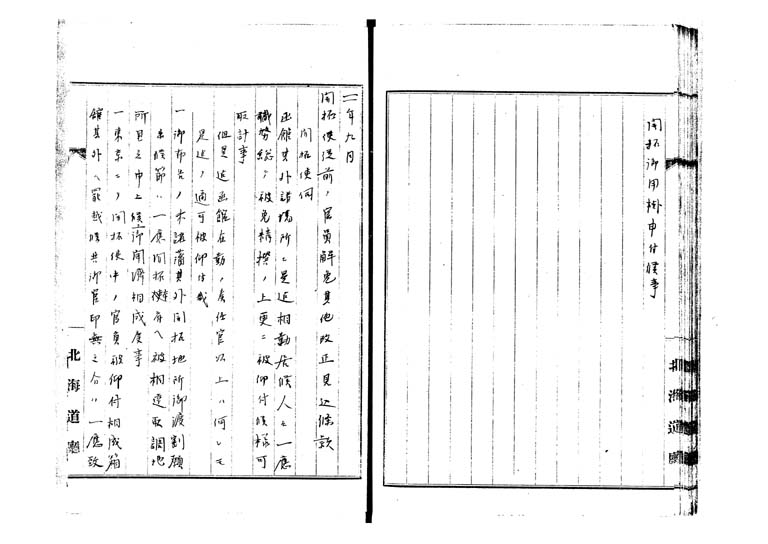 開拓御用掛申付候事
北海道廳
二年九月
開拓使従前ノ官員解免其他改正見込條款
開拓使伺
函館其外諸場所ニ是迄相勤居候人々一應
職務総テ被免精撰ノ上更ニ被仰付候様可
取計事
但是迄函館在勤ノ者任官以上ハ何レモ
是迄ノ通可被仰付哉
一御布告ノ末諸藩其外開拓地所御渡割願
出候節ハ一應開拓掛有ヘ被相達取調地
所見込申上候上御聞濟相成度事
一東京ニテ開拓使中ノ官員被仰付相成箱
館其外ヘ罷越候共御官印無之分ハ一應致
北海道廳